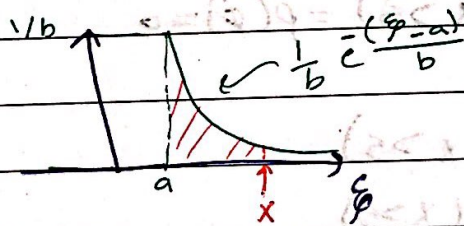 1/b
1/b e^-(ξ-a)/b
a
x
ξ